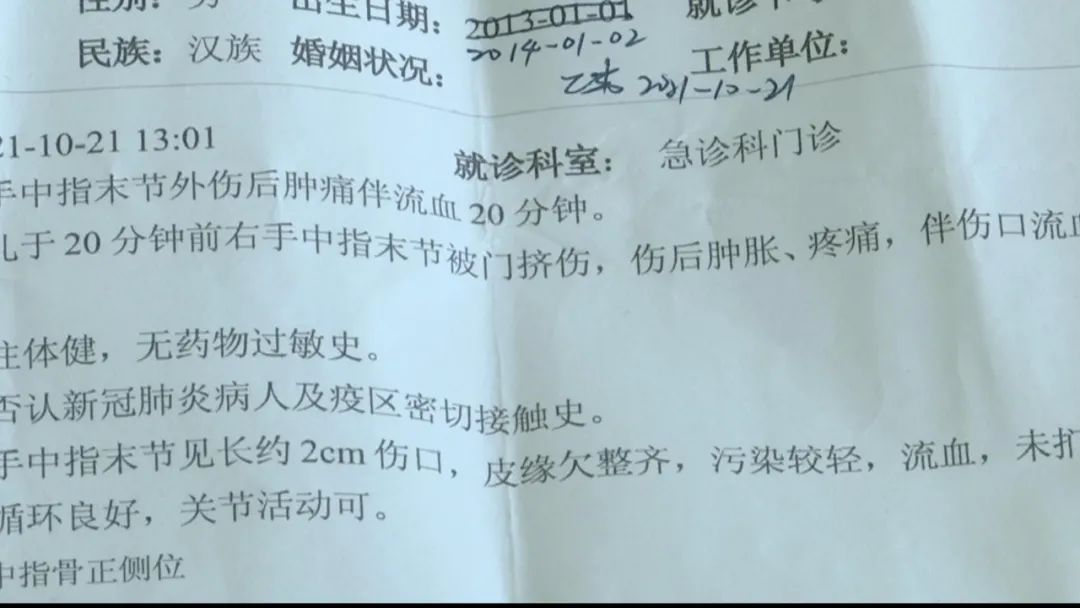 性别： 男 出生日期： 2013-01-01
2014-01-02
民族： 汉族 婚姻状况： 工作单位：
2021-10-21
21-10-21 13:01 就诊科室： 急诊科门诊
手中指末节外伤后肿痛伴流血 20 分钟。
于 20 分钟前右手中指末节被门挤伤，伤后肿胀、疼痛，伴伤口流血
往体健，无药物过敏史。
否认新冠肺炎病人及疫区密切接触史。
手中指末节见长约 2cm 伤口，皮缘欠整齐，污染较轻，流血，未扪
循环良好，关节活动可。
中指骨正侧位